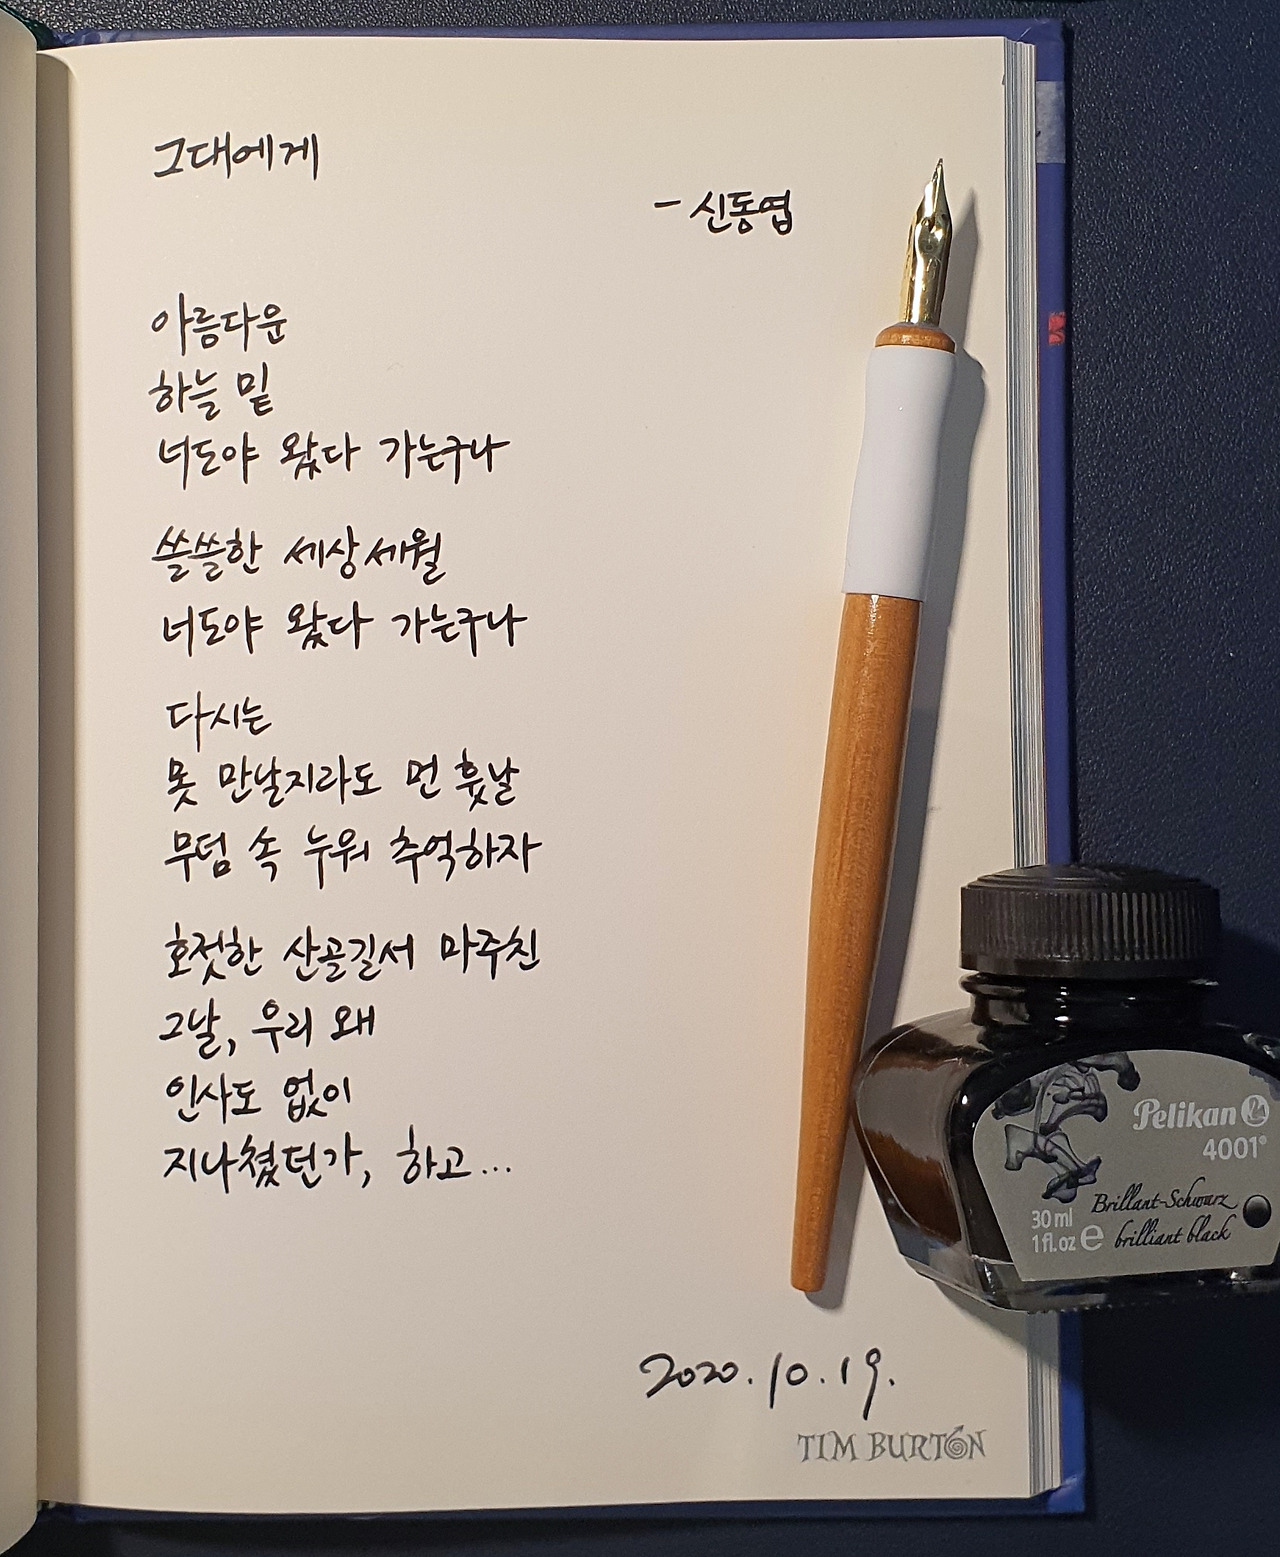 그대에게
- 신동엽
아름다운
하늘 밑
너도야 왔다 가는구나
쓸쓸한 세상세월
너도야 왔다 가는구나
다시는
못 만날지라도 먼 훗날
무덤 속 누워 추억하자
호젓한 산골길서 마주친
그날, 우리 왜
인사도 없이
지나쳤던가, 하고...
2020.10.19.
TIM BURTON
Pelikan
4001®
Brillant-Schwarz
brilliant black
30 ml
1 fl.oz e